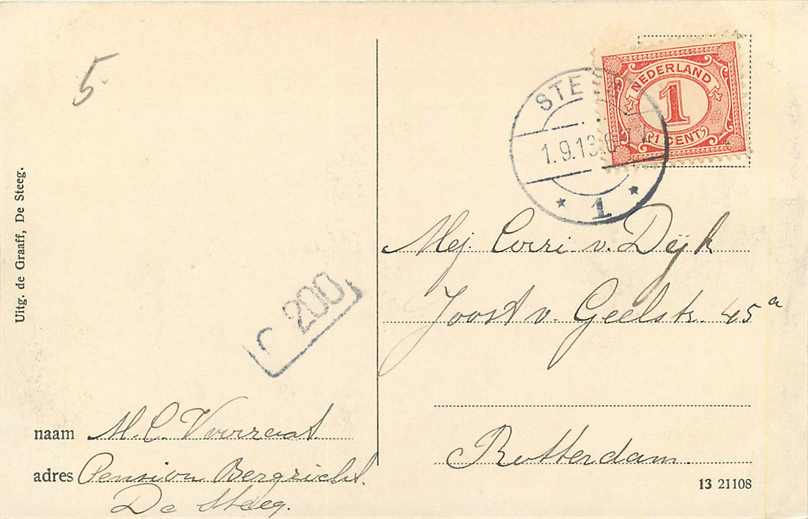 5
NEDERLAND
1
1 CENT
STEEG
1.9.13.
1
Uitg. de Graaff, De Steeg.
Mej. Corri v. Dÿk
Joost v. Geelstr. 45a
Rotterdam.
C 200
naam M.C. Voorraat
adres Pension Bergzicht.
De Steeg.
13 21108